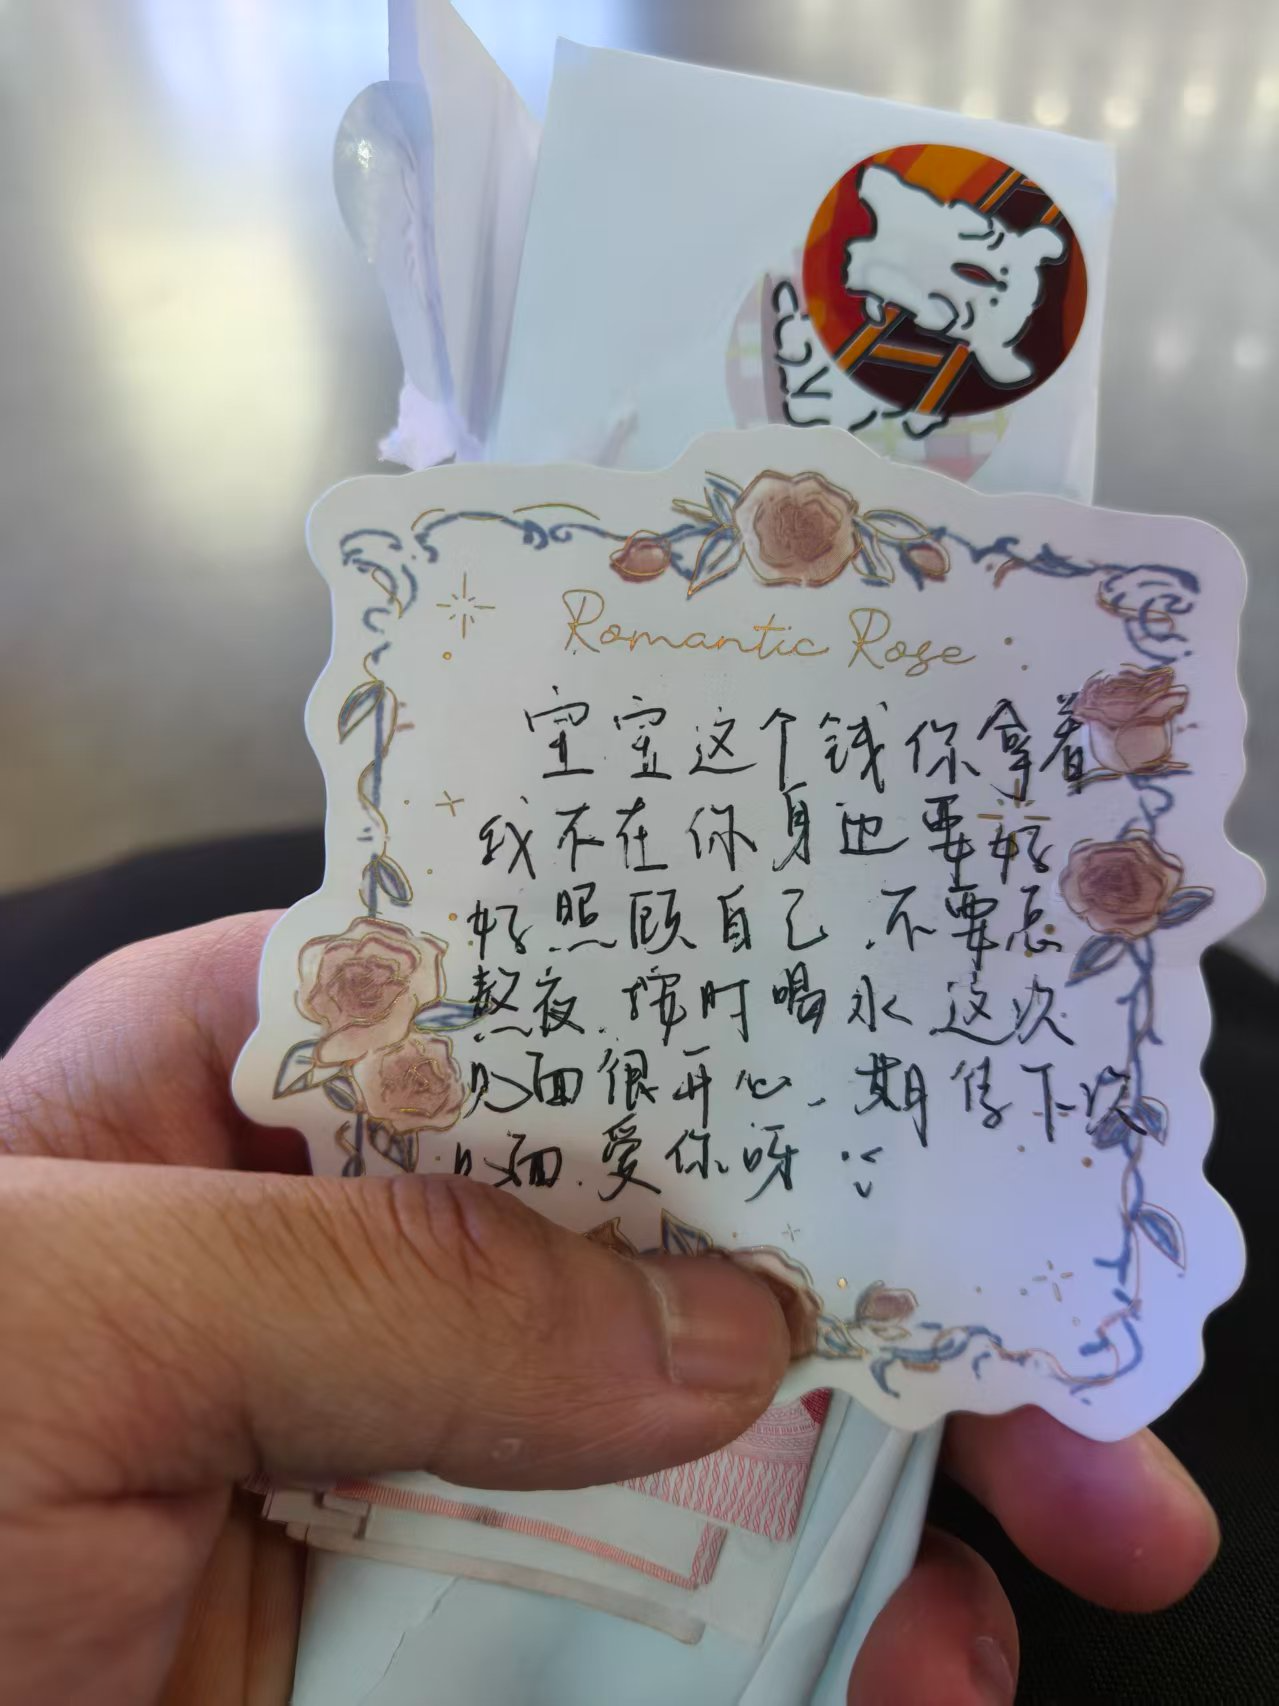 Romantic Rose
宝宝这个钱你拿着
我不在你身边要好
好照顾自己.不要总
熬夜.按时喝水这次
见面很开心.期待下次
见面.爱你呀